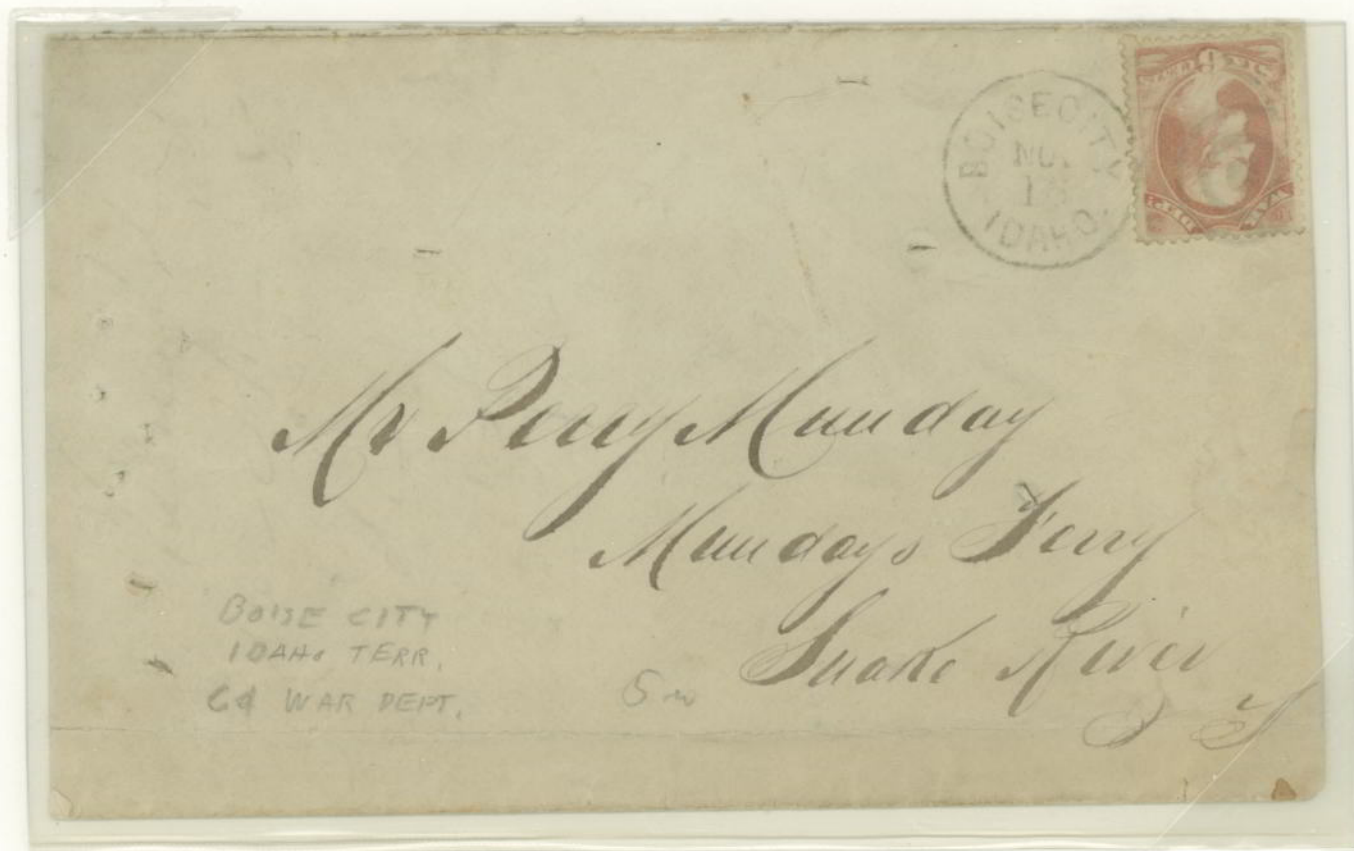 BOISE CITY
NOV
18
IDAHO.
WAR DEPT.
Mr Perry Munday
Mundays Ferry
Snake River
I T
BOISE CITY
IDAHO TERR.
6¢ WAR DEPT.